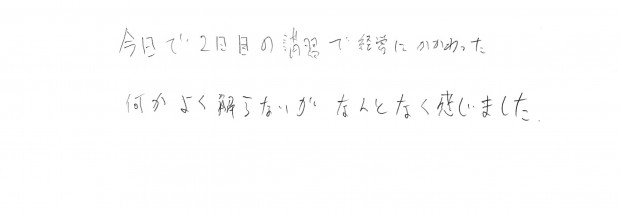 今日で2日目の講習で経営にかかわった
何かよく解らないがなんとなく感じました.